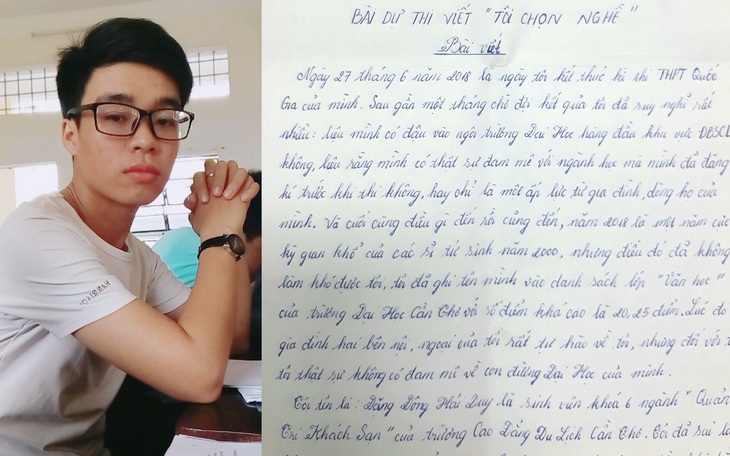 BÀI DỰ THI VIẾT "TÔI CHỌN NGHỀ"
Bài viết
Ngày 27 tháng 6 năm 2018 là ngày tôi kết thúc kì thi THPT Quốc
Gia của mình. Sau gần một tháng chờ đợi kết quả tôi đã suy nghĩ rất
nhiều: liệu mình có đậu vào ngôi trường Đại Học hàng đầu khu vực ĐBSCL
không, liệu rằng mình có thật sự đam mê với ngành học mà mình đã đăng
kí trước khi thi không, hay chỉ là một áp lực từ gia đình, dòng họ của
mình. Và cuối cùng điều gì đến rồi cũng đến, năm 2018 là một năm cực
kỳ gian khổ của các sĩ tử sinh năm 2000, nhưng điều đó đã không
làm khó được tôi, tôi đã ghi tên mình vào danh sách lớp "Văn học"
của trường Đại Học Cần Thơ với số điểm khá cao là 20,25 điểm. Lúc đó
gia đình hai bên nội, ngoại của tôi rất tự hào về tôi, nhưng đối với
tôi thật sự không có đam mê về con đường Đại Học của mình.
Tôi tên là: Đặng Đông Hải Duy là sinh viên khoá 6 ngành "Quản
Trị Khách Sạn" của trường Cao Đẳng Du Lịch Cần Thơ. Tôi đã